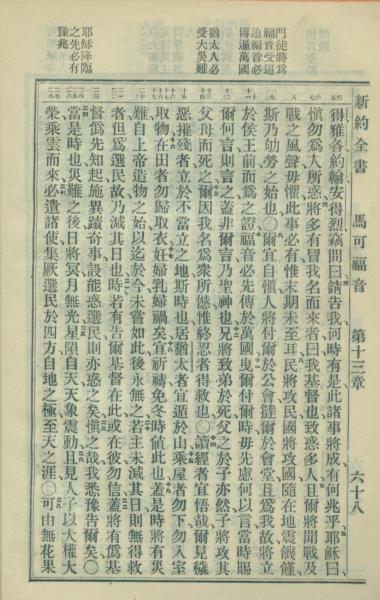 新約全書　馬可福音　第十三章　六十八
得雅各約翰安得烈竊問曰請告我何時有是此諸事將成有何兆乎耶穌曰
慎勿為人所惑將多有冒我名而來者曰我基督也致惑多人且爾將聞戰及
戰之風聲毋懼此事必有惟末期未至耳民將攻民國將攻國隨在地震饑饉
斯乃劬勞之始也○爾宜自慎人將付爾於公會撻爾於會堂且為我故將立
於侯王前而為之證福音必先傳於萬國曳爾付爾時毋先慮何以言當時賜
爾何言則言之蓋非爾言乃聖神也兄將致弟於死父之於子亦然子將攻其
父母而死之爾因我名為眾所憾惟終忍者得救也○讀經者宜悟哉爾見穢
惡摧殘者立於不當立之地斯時也居猶太者宜遁於山乘屋者勿下勿入室
取物在田者勿歸取衣妊婦乳婦禍矣宜祈禱免冬時值此也蓋是時將有災
難自上帝造物之始以迄於今未嘗如此後永無之若主未減其日則無得救
者但為選民故乃減其日也時若有告爾基督在此或在彼勿信蓋將有偽基
督偽先知起施異蹟奇事設能惑選民則亦惑之矣慎之哉我悉豫告爾矣○
當是時也災難之後日將冥月無光星隕自天天象震動且見人子以大權大
榮乘雲而來必遣諸使集厥選民於四方自地之極至天之涯○可由無花果
門徒將為
福音受逼
迫福音必
傳遍萬國
猶太人必
受大災難
耶穌降臨
之先必有
豫兆